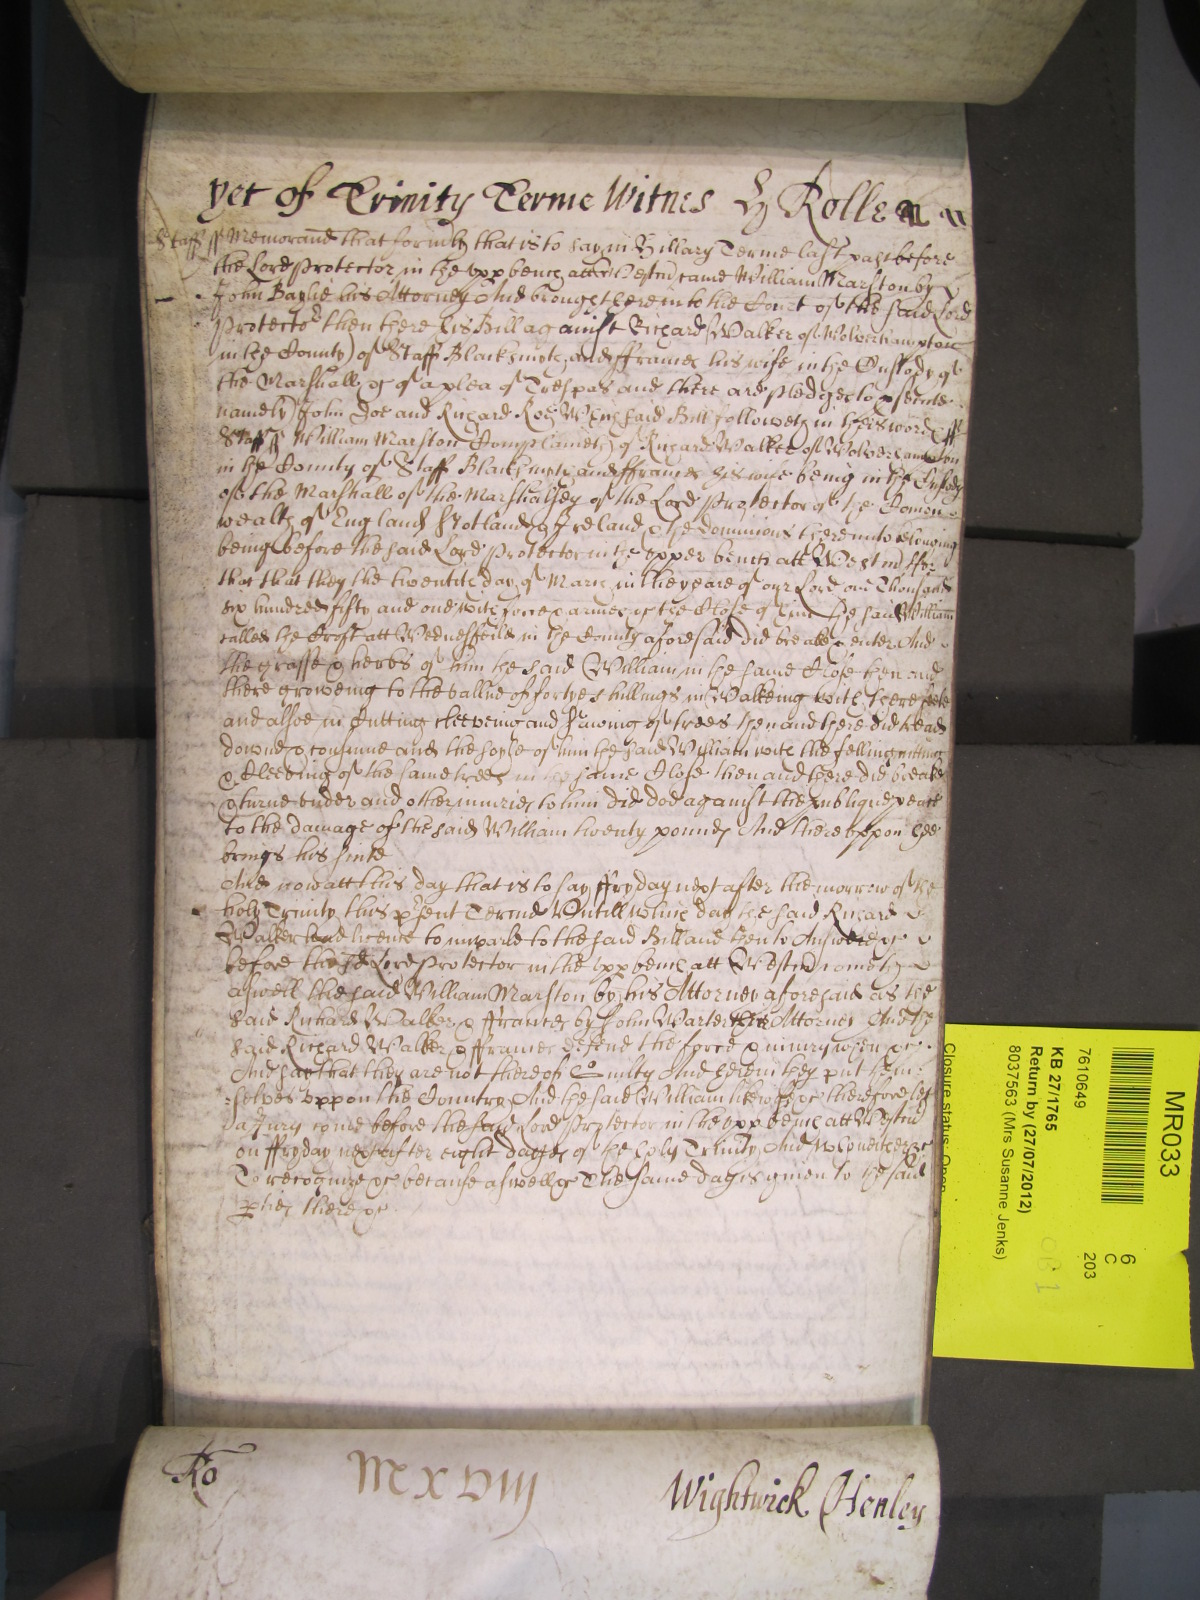 yet of Trinity Terme Witnes Hy Rolle
Staff ss Memorand that formly that is to say in Hillary Terme last past before
the Lord Protector in the upp bench att Westm came William Marston by
John Baylie his Attorney And brought here into the Court of the said Lord
Protector then there his Bill against Richard Walker of Wolverhampton
in the County of Staff Blacksmyth and ffrances his wife in the Custody of
the Marshall &c of a plea of Trespas and there are pledges to psecute
namely John Doe and Richard Roe Which said Bill followeth in theis words ss
Staff ss William Marston Complaineth of Richard Walker of Wolverhampton
in the County of Staff Blacksmyth and ffrances his wife being in the Custody
of the Marshall of the Marshalsey of the Lord Protector of the Comon
wealth of England Scotland & Ireland & the dominions thereunto belonging
being before the said Lord Protector in the upper bench att Westm ffor
that that they the twentith day of March in the yeare of our Lord one Thousand
six hundred fifty and one with force & armes &c the Close of him the said William
called the Croft att Wednesfeild in the County aforesaid did breake & enter And
the grasse & herbs of him the said William in the same Close then and
there groweing to the vallue of fortye shillings in Walkeing with there feete
and alsoe in Cutting cleeveing and sawing of trees then and there did tread
downe & consume and the soyle of him the said William with the felling cutting
& Cleeveing of the same trees in the same Close then and there did breake
& turne under and other iniuries to him did doe against the publique peace
to the damage of the said William twenty pounds And thereuppon hee
brings his suite
And now att this day that is to say ffryday next after the morrow of the
holy Trinity this psent Terme Untill which day the said Richard
Walker had licence to imparle to the said Bill and then to Answere &c
before the sd Lord Protector in the upp bench att Westm cometh
aswell the said William Marston by his Attorney aforesaid as the
said Richard Walker & ffrances by John Warter their Attorney And the
said Richard Walker & ffrances defend the force & iniury when &c
And say that they are not thereof Guilty And herein they put them
selves uppon the Country And the said William likewise &c therefore let
a Jury come before the said Lord Protector in the upp bench att Westm
on ffryday next after eight dayes of the holy Trinity And Who neither &c
To recognize &c because aswell &c The same day is given to the said
pties there &c
Ro MXDIII Wightwick Henley
MR033
6
C
203
7610649
KB 27/1765
Return by (27/07/2012)
8037563 (Mrs Susanne Jenks)
Closure status: Open